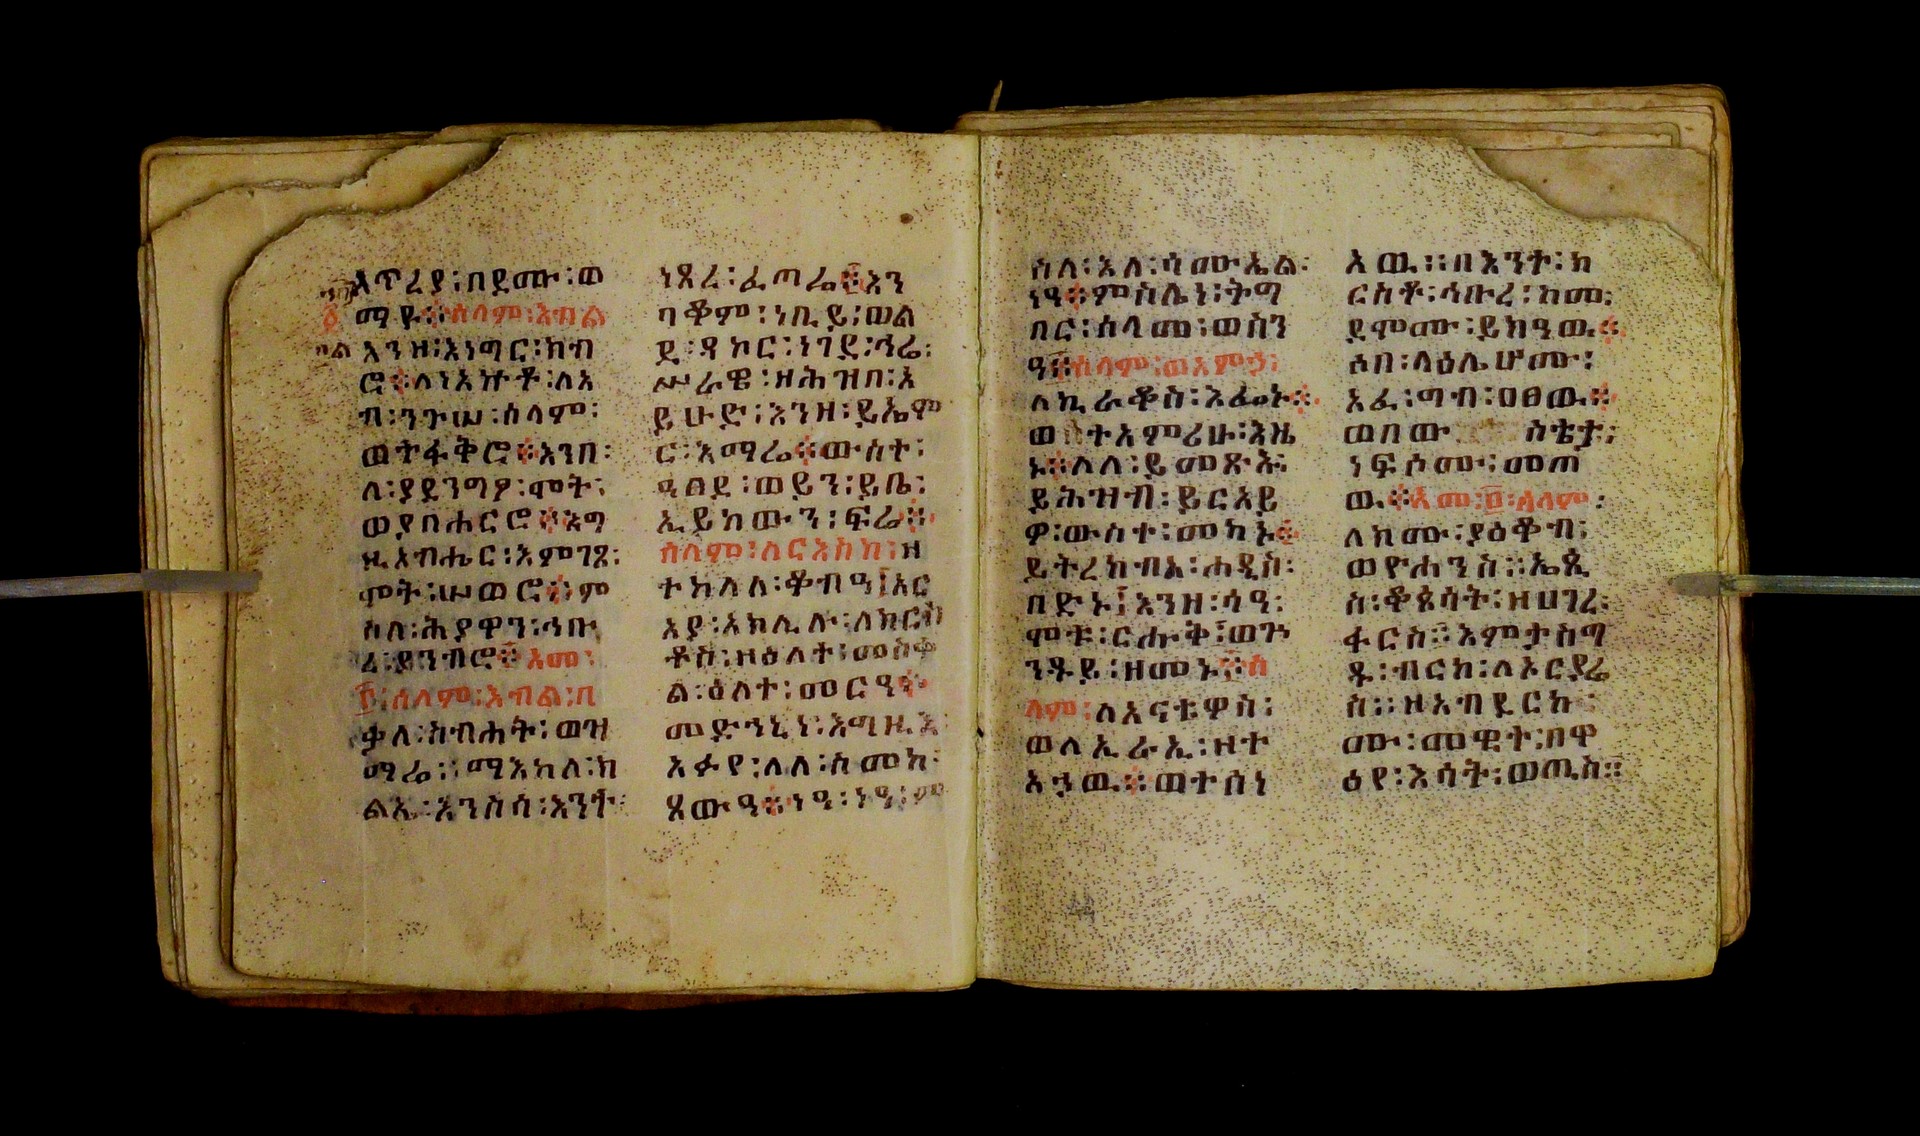 ለጥረያ፡በደሙ፡ወ
ማዩ፨ሰላም፡እብል
እንዘ፡እነግር፡ክብ
ሮ፨ለነአኵቶ፡ለአ
ብ፡ንጉሠ፡ሰላም፡
ወትፋቅሮ፨እንበ፡
ለ፡ያደንግፆ፡ሞት፡
ወያበሐርሮ፨እግ
ዚአብሔር፡እምገጸ፡
ሞት፡ሠወሮ፨ም
ስለ፡ሕያዋን፡ኅቡ
ረ፡ያንብሮ፨አመ፡
፩፡ሰላም፡እብል፡በ
ቃለ፡ስብሐት፡ወዝ
ማሬ፨ማእከለ፡ክ
ልኤ፡እንስሳ፡እንተ፡
ነጸረ፡ፈጣሬ፨እን
ባቆም፡ነቢይ፡ወል
ደ፡ዳኮር፡ነገደ፡ኅሬ፡
ሠራዊ፡ዘሕዝበ፡አ
ይሁድ፡እንዘ፡ይኤም
ር፡አማሬ፨ውስተ፡
ዓፀደ፡ወይን፡ይቤ፡
ኢይከውን፡ፍሬ፨
ሰላም፡ለርእከከ፡ዘ
ተከለለ፡ቆብዓ፤አር
አያ፡አክሊሉ፡ለክርስ
ቶስ፡ዘዕለተ፡መስቀ
ል፡ዕለተ፡መርዓ፨
መድኀኒነ፡እግዚእ
አፉየ፡ለለ፡ስመከ፡
ጸውዓ፨ነዓ፡ነዓ፡ም
ስለ፡እለ፡ሳሙኤል፡
ነዓ፨ምስሌነ፡ትግ
በር፡ሰላመ፡ወስን
ዓ፨ሰላም፡ወአምኃ፡
ለኪራቆስ፡እፌኑ፨
ወበተአምሪሁ፡እዜ
ኑ፨ለለ፡ይመጽእ፡
ይሕዝብ፡ይርአይ
ዎ፡ውስተ፡መካኑ፨
ይትረከብአ፡ሐዲስ፡
በድኑ፤እንዘ፡ሳዓ፡
ሞቱ፡ርሑቅ፡ወጐ
ንዱይ፡ዘመኑ፨ሰ
ላም፡ለአናቲዎስ፡
ወለኢራኢ፡ዘተ
አኃዉ፨ወተሰነ
አዉ፨በእንተ፡ክ
ርስቶ፡ኅቡረ፡ከመ፡
ደሞሙ፡ይክዓዉ፨
ሰበ፡ላዕሌሆሙ፡
አፈ፡ግብ፡ዐፀዉ፨
ወበው ስቴታ፡
ነፍሶሙ፡መጠ
ዉ፨አመ፡፬፡ሰላም፡
ለክሙ፡ያዕቆብ፡
ወዮሐንስ፨ኤጲ
ስ፡ቆጶሳት፡ዘሀገረ፡
ፋርስ፨እምታስግ
ዱ፡ብርክ፡ለኦርያሬ
ስ፨ዞአብዪርክ፡
ሙ፡መዊት፡በዋ
ዕየ፡እሳት፡ወጢስ፨